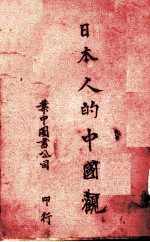 日本人的中國觀
華中圖書公司
印行